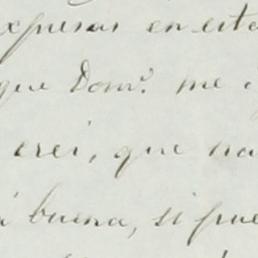 expresas en esta
que Domr. me
crei, que na
i buena, si pue